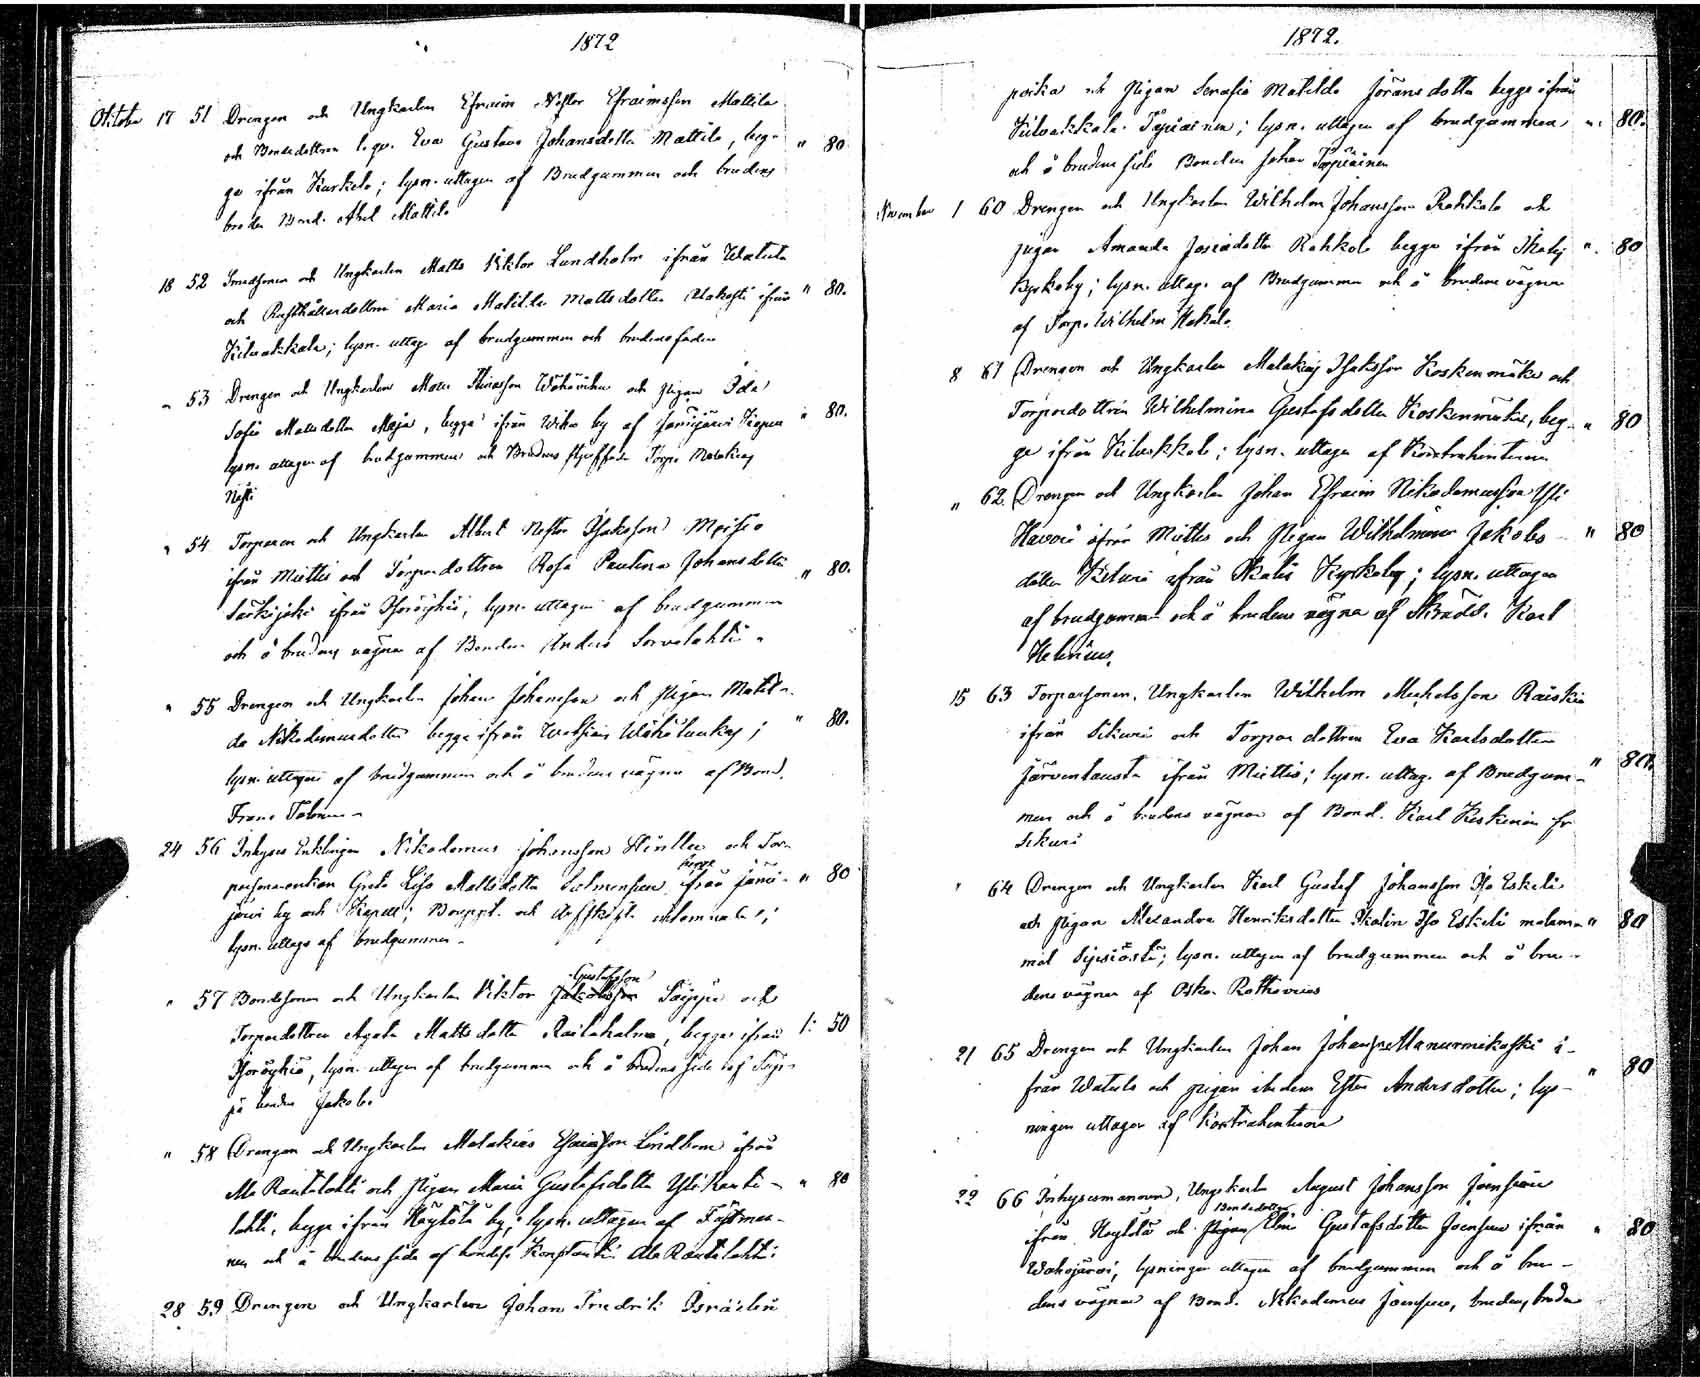 1872
Oktober 17 51 Drengen och Ungkarlen Efraim Nestor Efraimsson Mattila
och Bondedottren l. qv. Eva Gustava Johansdotter Mattila, beg- " 80
ge ifrån Karkela; lysn. uttagen af Brudgummen och brudens
broder Bond. Abel Mattila
18 52 Smedsonen och Ungkarlen Matts Viktor Lundholm ifrån Watula
och Rusthållardottren Maria Matilda Mattsdotter Alakosti ifrån " 80.
Kilvakkala; lysn. uttag. af brudgummen och brudens fader
" 53 Drengen och Ungkarlen Moses Wähäviha och Pigan Ida
Sofia Mattsdotter Maja, begge ifrån Wiha by af Jämijärvi Kapell " 80.
lysn. uttagen af brudgummen och Brudens styffader Torp. Malakias
54 Torparen och Ungkarlen Albert Nestor Isaksson Moisio
ifrån Miettis och Torpardottren Rosa Paulina Johansdotter " 80.
Särkijoki ifrån Isoröyhiö, lysn. uttagen af brudgummen
och å brudens vägnar af Bonden Anders Sorvalahti
" 55 Drengen och Ungkarlen Johan Johansson och Pigan Matil-
da Nikodemusdotter begge ifrån Wähälankas; " 80.
lysn. uttagen af brudgummen och å brudens vägnar af Bond.
Frans
24 56 Inhyses Enklingen Nikodemus Johansson och Tor-
begge
Greta Lisa Mattsdotter Salmensuu ifrån Jämi- " 80
järvi by och Kapell; Bouppt. och Afvittr.
lysn. uttagen af brudgummen
Gustafsson
" 57 Bondesonen och Ungkarlen Viktor Jakobsson Seppä och
Torpardottren Agata Mattsdotter begge ifrån 1: 50
Isoröyhiö, lysn. uttagen af brudgummen och å brudens sida af Sep-
pä bonden Jakob.
" 58 Drengen och Ungkarlen Malakias Esaiasson Lindbom ifrån
Ala Rautalahti och Pigan Maria Gustafsdotter Yli Rauta- " 80
lahti, begge ifrån Höytölä by; lysn. uttagen af Fästman-
nen och å brudens sida af bondes. Konstantin Ala Rautalahti
28 59 Drengen och Ungkarlen Johan Fredrik Israelin
1872.
poika och Pigan Serafia Matilda Jöransdotter begge ifrån
Kilvakkala Tepiainen; lysn. uttagen af brudgummen " 80.
och å brudens sida Bonden Johan Tepiainen
November 1 60 Drengen och Ungkarlen Wilhelm Johansson Rahkola och
pigan Amanda Josiadotter Rahkola begge ifrån Ikalis " 80
Kyrkoby; lysn. uttag. af Brudgummen och å brudens vägnar
af Torp. Wilhelm Hakala.
8 61 Drengen och Ungkarlen Malakias Isaksson Koskenmäki och
Torpardottren Wilhelmina Gustafsdotter Koskenmäki, beg- " 80
ge ifrån Kilvakkala; lysn. uttagen af Kontrahenterna
" 62. Drengen och Ungkarlen Johan Efraim Nikodemusson Yli
Havoi ifrån Miettis och Pigan Wilhelmina Jakobs- " 80
dotter Keturi ifrån Ikalis Kyrkoby; lysn. uttagen
af brudgummen och å brudens vägnar af Skrädd. Karl
Helenius.
15 63 Torparsonen, Ungkarlen Wilhelm Michelsson Raiskio
ifrån Sikuri och Torpardottren Eva Karlsdotter
Järventausta ifrån Miettis; lysn. uttag. af Brudgum- " 80.
men och å brudens vägnar af Bond. Karl Keskinen fr
Sikuri
" 64 Drengen och Ungkarlen Karl Gustaf Johansson Iso Eskeli
och Pigan Alexandra Henriksdotter Skalin Iso Eskeli " 80
lysn. uttagen af brudgummen och å bru-
dens vägnar af Oskar Rothovius
21 65 Drengen och Ungkarlen Johan Johansson Manurmikoski i-
från Watula och pigan ibidem Ester Andersdotter; lys- " 80
ningen uttagen af Kontrahenterna
22 66 Inhysesmannen, Ungkarlen August Johansson Joensuu
Bondedotter
ifrån Höytölä och Pigan Elin Gustafsdotter Joensuu ifrån " 80
Wahojärvi, lysningen uttagen af brudgummen och å bru-
dens vägnar af Bond. Nikodemus Joensuu, brudens broder